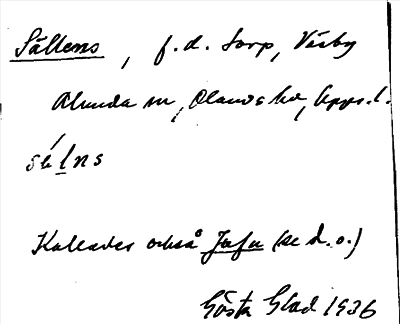 Sällens, f.d. torp, Väsby
Alunda sn, Olands hd, Upps.l.
sälns
Kallades också Jafu (se d.o.)
Gösta Glad 1936